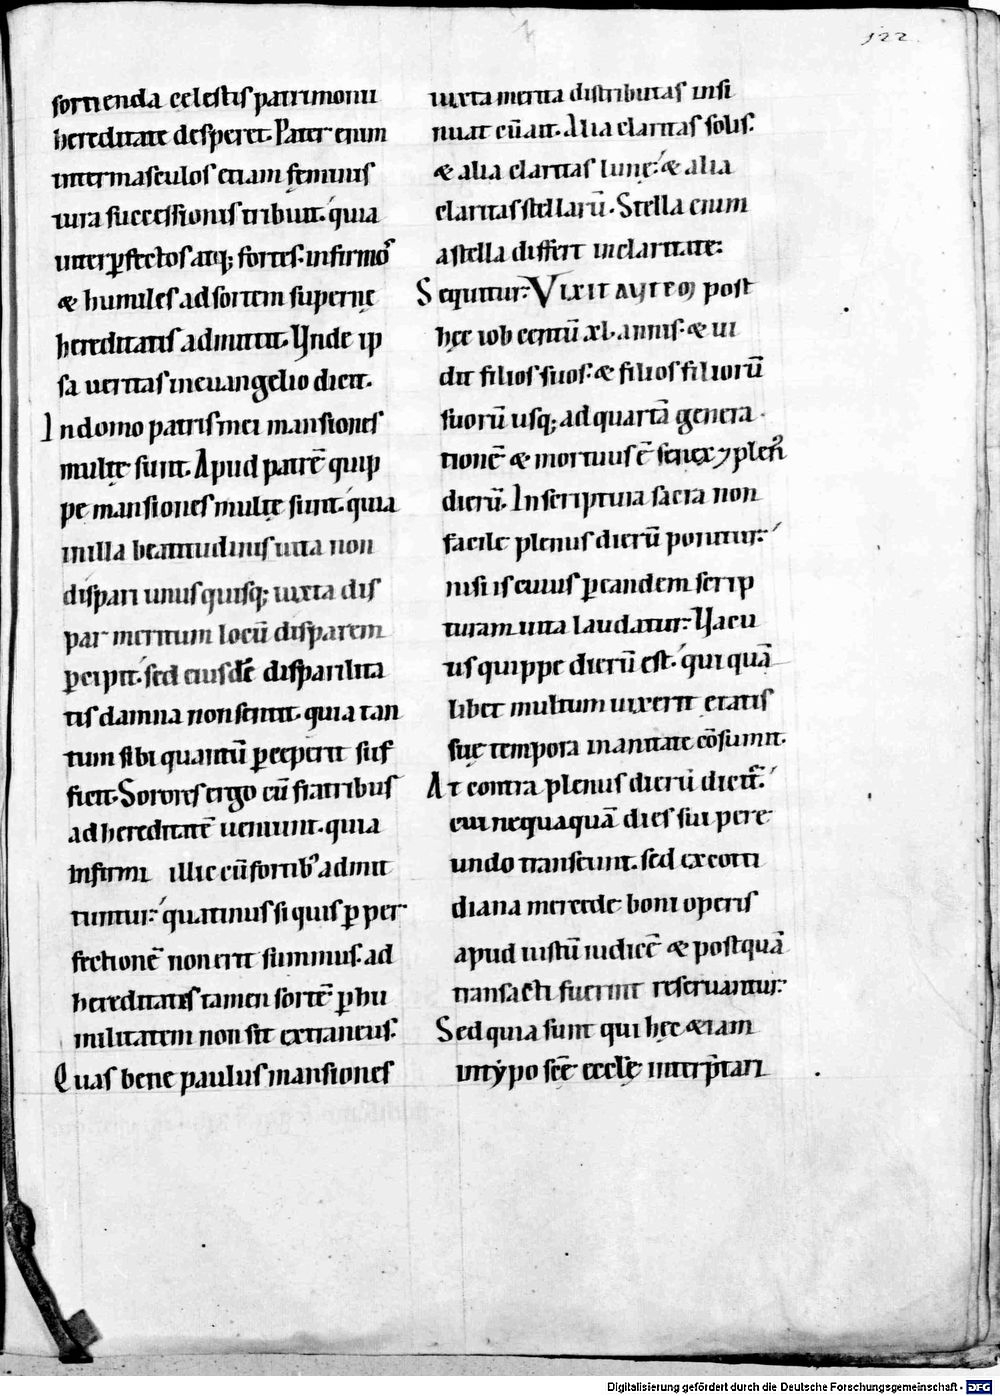 122
sortienda cęlestis patrimonii
hereditate desperet. Pater enim
inter masculos etiam feminis
iura successionis tribuit. quia
inter ꝑfectos atq; fortes. infirmos
& humiles ad sortem supernę
hereditatis admittit. Vnde ip
sa ueritas in euangelio dicit.
In domo patris mei mansiones
multę sunt. Apud patrē quip
pe mansiones multę sunt. quia
in illa beatitudinis uita non
dispari unusquisq; iuxta dis
par meritum locū disparem
ꝑcipit. sed eiusdē disparilita
tis damna non sentit. quia tan
tum sibi quantū ꝑceperit suf
ficit. Sorores ergo cū fratribus
ad hereditatē ueniunt. quia
infirmi illic cū fortib' admit
tuntur. quatinus si quis ꝑ per
fectionē non erit summus. ad
hereditatis tamen sortē ꝑ hu
militatem non sit extraneus.
Quas bene paulus mansiones
iuxta merita distributas insi
nuat cū ait. Alia claritas solis.
& alia claritas lunę. & alia
claritas stellarū. Stella enim
a stella differt in claritate.
Sequitur. VIXIT AUTEM post
hęc iob centū xl. annis. & ui
dit filios suos. & filios filiorū
suorū usq; ad quartā genera
tionē & mortuus ē senex ⁊ plen'
dierū. In scriptura sacra non
facile plenus dierū ponitur.
nisi is cuius ꝑ eandem scrip
turam uita laudatur. Vacu
us quippe dierū est. qui quā
libet multum uixerit ętatis
suę tempora in uanitate cōsumit.
At contra plenus dierū dicit̄.
cui nequaquā dies sui pere
undo transeunt. sed ex coti
diana mercede boni operis
apud iustū iudicē & postquā
transacti fuerint reseruantur.
Sed quia sunt qui hęc &iam
in typo scē ecclę interp̄tari
Digitalisierung gefördert durch die Deutsche Forschungsgemeinschaft - DFG